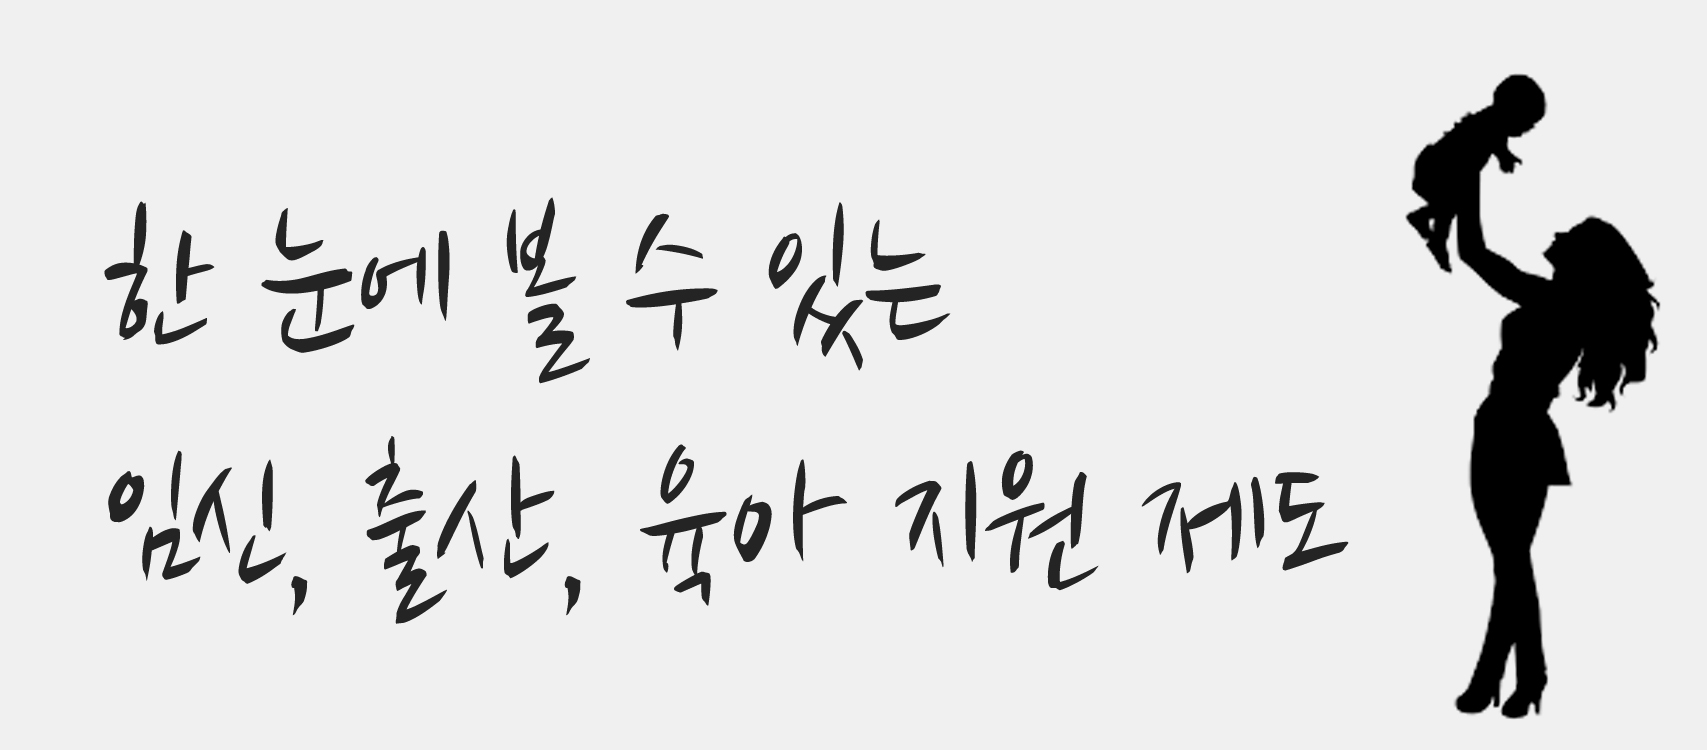 한 눈에 볼 수 있는
임신, 출산, 육아 지원 제도